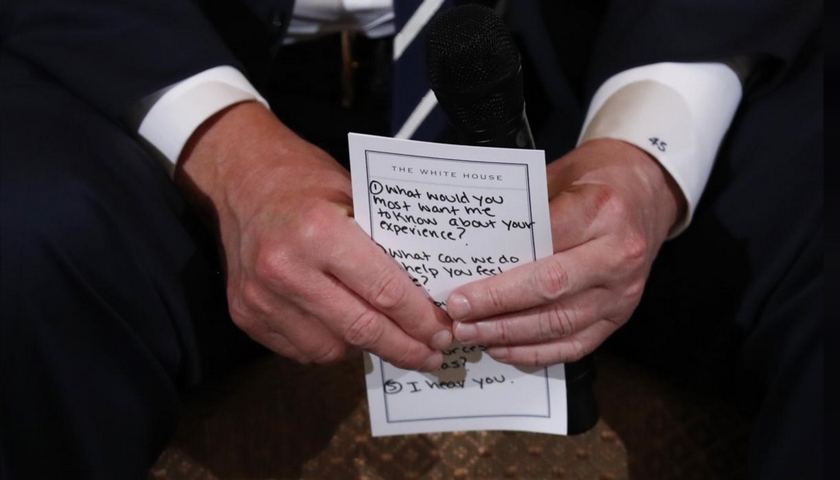 45
THE WHITE HOUSE
① What would you
most want me
to know about your
experience?
What can we do
help you feel
?
as?
⑤ I hear you.